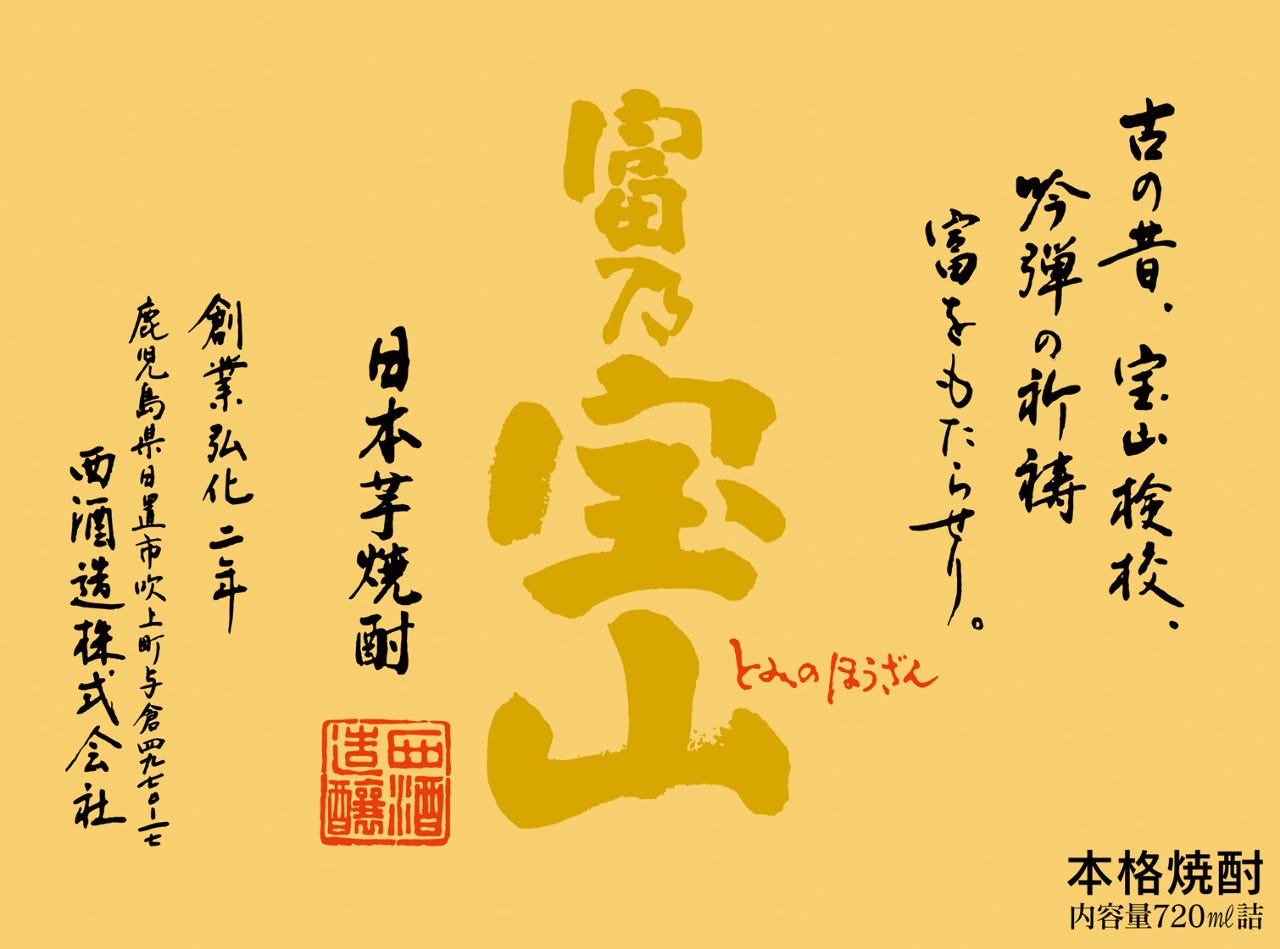 古の昔、宝山検校、
吟弾の祈祷
富をもたらせり。
富乃宝山
とみのほうざん
日本芋焼酎
西酒造醸
創業弘化二年
鹿児島県日置市吹上町与倉四九七〇-一七
西酒造株式会社
本格焼酎
内容量720ml詰